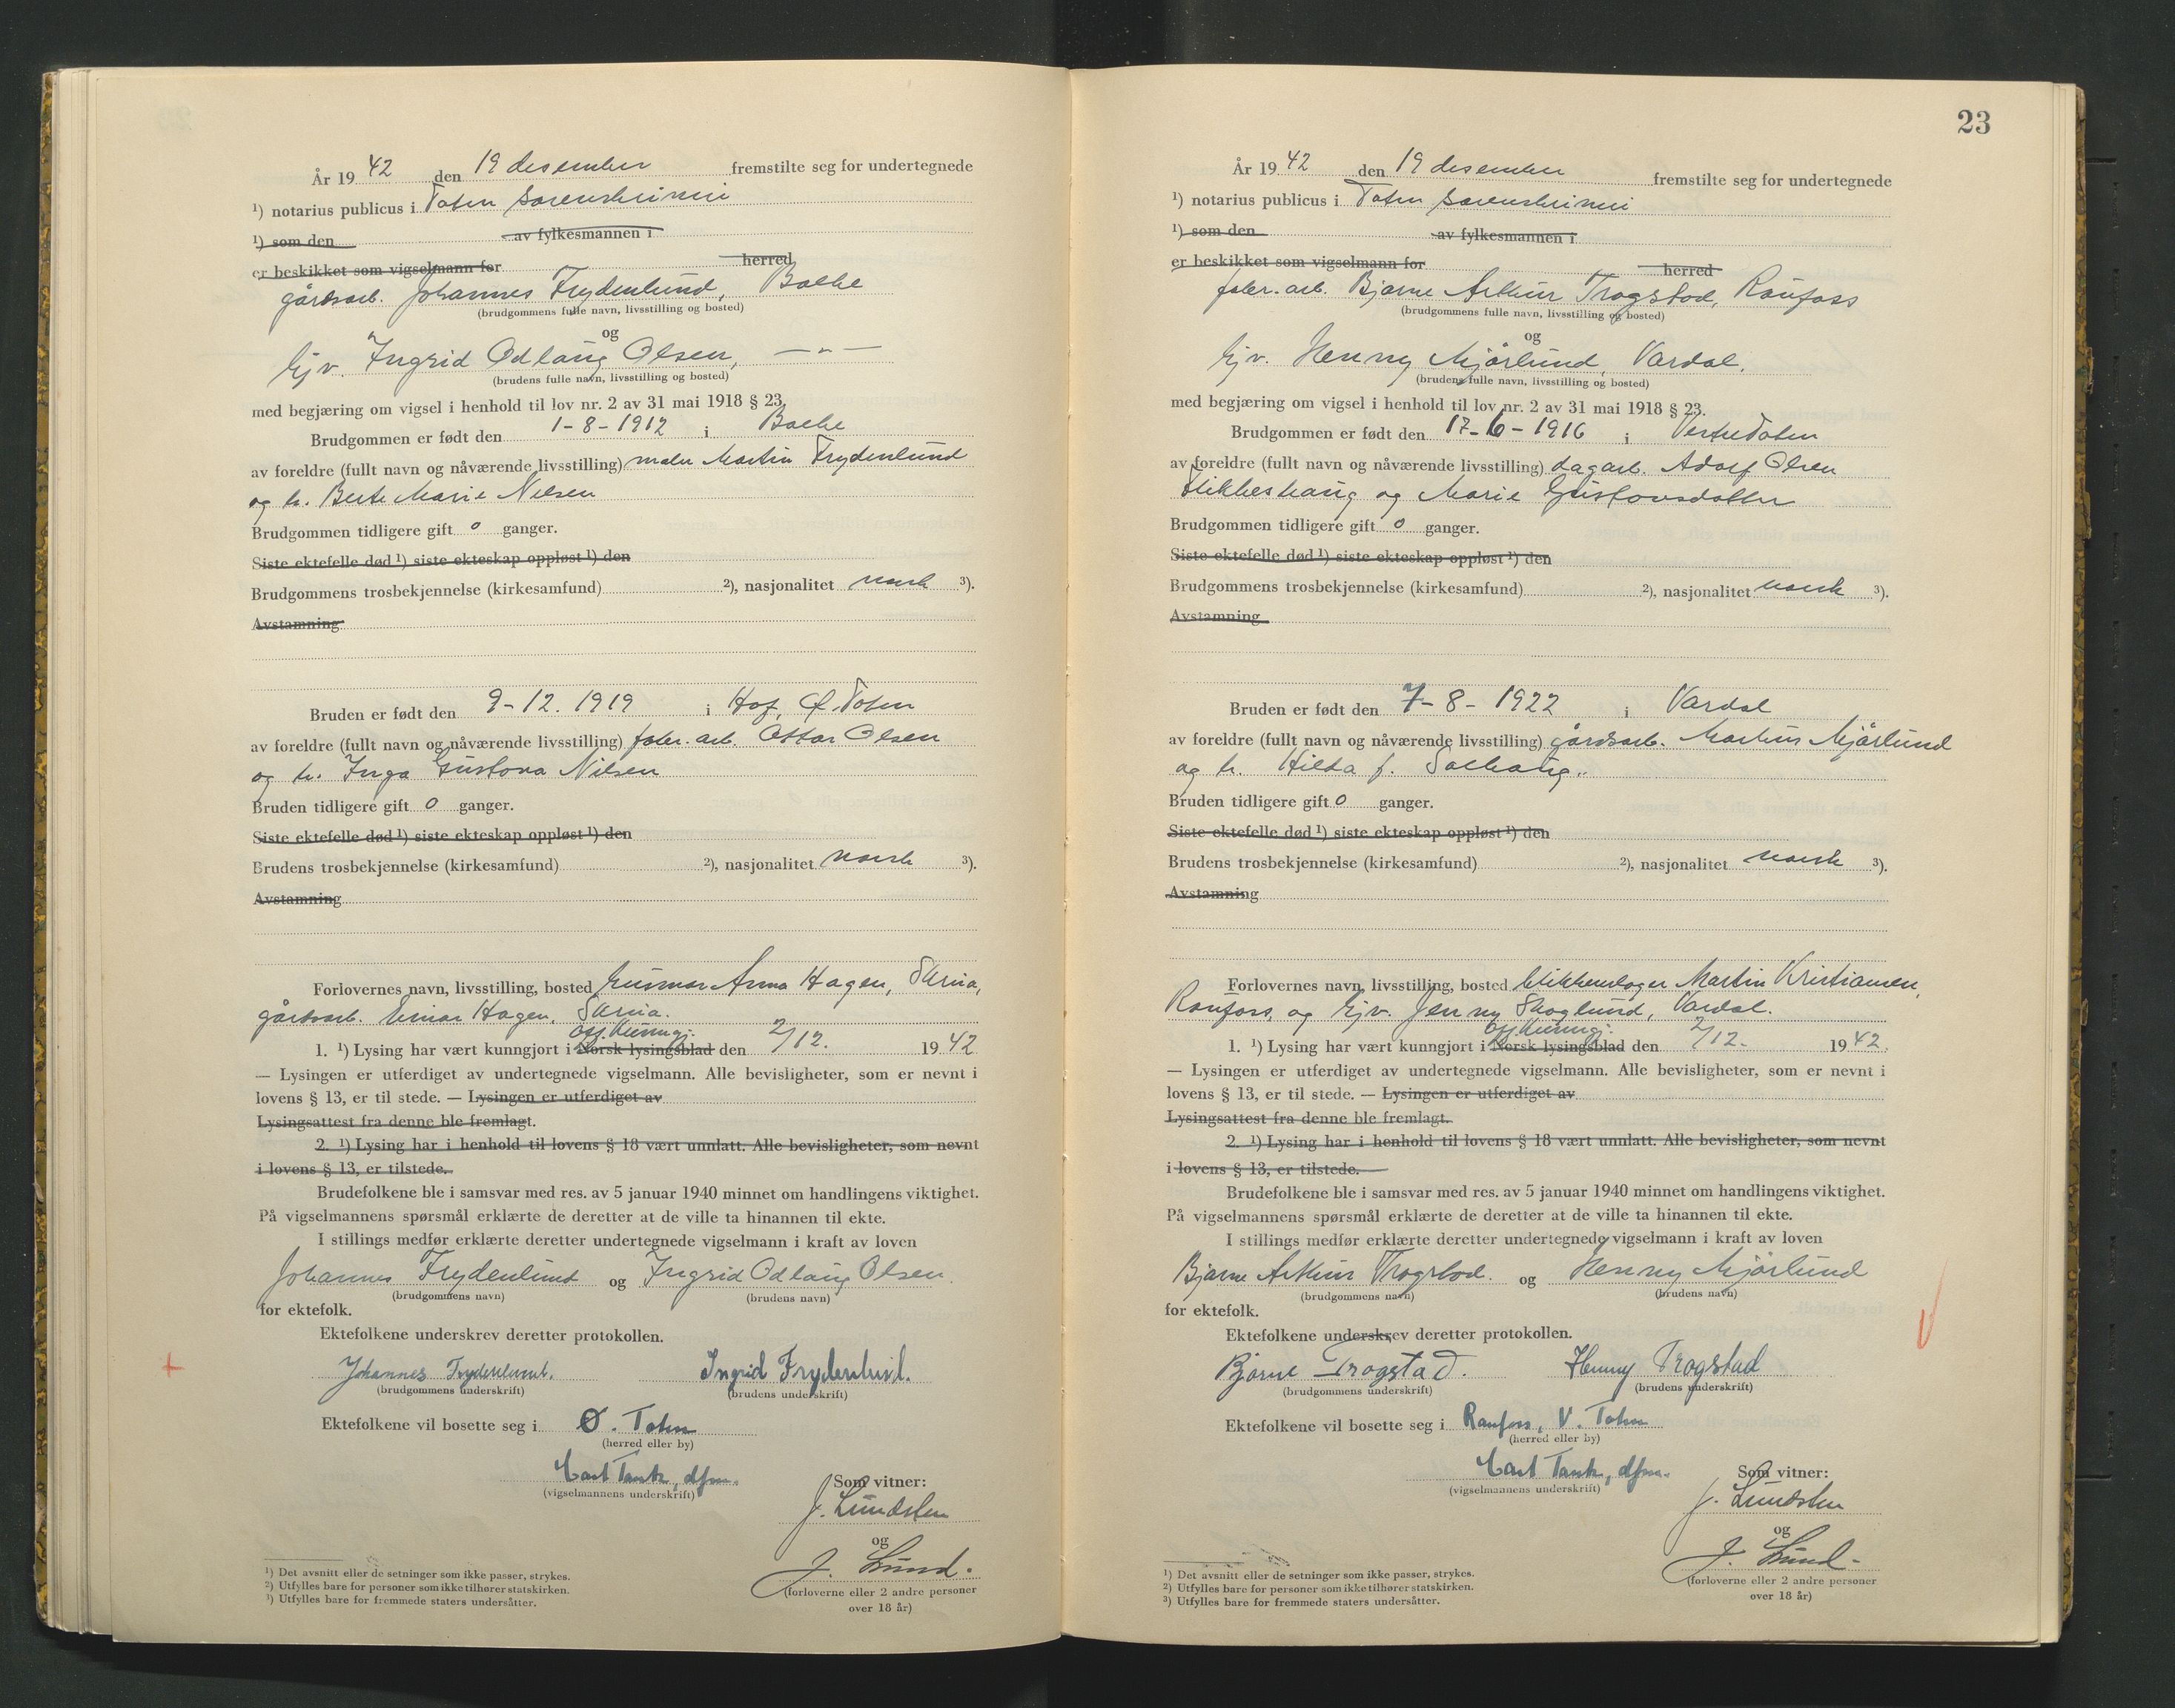 År 19 42 den 19 desember fremstilte seg for undertegnede
¹) notarius publicus i Toten sorenskriveri
¹) som den av fylkesmannen i
er beskikket som vigselmann for herred
gårdsarb. Johannes Frydenlund, Balke
(brudgommens fulle navn, livsstilling og bosted)
og
Ejv. Ingrid Odlaug Olsen, — " —
(brudens fulle navn, livsstilling og bosted)
med begjæring om vigsel i henhold til lov nr. 2 av 31 mai 1918 § 23.
Brudgommen er født den 1-8-1912 i Balke
av foreldre (fullt navn og nåværende livsstilling) maler Martin Frydenlund
og h. Berte Marie Nilsen
Brudgommen tidligere gift 0 ganger.
Siste ektefelle død ¹) siste ekteskap oppløst ¹) den
Brudgommens trosbekjennelse (kirkesamfund) ²), nasjonalitet norsk ³).
Avstamning
Bruden er født den 9-12. 1919 i Hof, Ø. Toten
av foreldre (fullt navn og nåværende livsstilling) fabr. arb. Ottar Olsen
og h. Inga Gustava Nilsen
Bruden tidligere gift 0 ganger.
Siste ektefelle død ¹) siste ekteskap oppløst ¹) den
Brudens trosbekjennelse (kirkesamfund) ²), nasjonalitet norsk ³).
Avstamning
Forlovernes navn, livsstilling, bosted Gunnar Arma Hagen, Skreia,
gårdsarb. Einar Hagen, Skreia.
off. kunngj.
1. ¹) Lysing har vært kunngjort i Norsk lysingsblad den 2/12. 19 42
— Lysingen er utferdiget av undertegnede vigselmann. Alle bevisligheter, som er nevnt i
lovens § 13, er til stede. — Lysingen er utferdiget av
Lysingsattest fra denne ble fremlagt.
2. ¹) Lysing har i henhold til lovens § 18 vært unnlatt. Alle bevisligheter, som nevnt
i lovens § 13, er tilstede.
Brudefolkene ble i samsvar med res. av 5 januar 1940 minnet om handlingens viktighet.
På vigselmannens spørsmål erklærte de deretter at de ville ta hinannen til ekte.
I stillings medfør erklærte deretter undertegnede vigselmann i kraft av loven
Johannes Frydenlund og Ingrid Odlaug Olsen.
(brudgommens navn) (brudens navn)
for ektefolk.
Ektefolkene underskrev deretter protokollen.
Johannes Frydenlund. Ingrid Frydenlund.
(brudgommens underskrift) (brudens underskrift)
Ektefolkene vil bosette seg i Ø. Toten
(herred eller by)
Carl Tank, dfm.
(vigselmannens underskrift)
Som vitner:
J. Lundsten
og
J. Lund.
(forloverne eller 2 andre personer
over 18 år)
¹) Det avsnitt eller de setninger som ikke passer, strykes.
²) Utfylles bare for personer som ikke tilhører statskirken.
³) Utfylles bare for fremmede staters undersåtter.
23
År 19 42 den 19 desember fremstilte seg for undertegnede
¹) notarius publicus i Toten sorenskriveri
¹) som den av fylkesmannen i
er beskikket som vigselmann for herred
fabr. arb. Bjarne Arthur Trogstad, Raufoss
(brudgommens fulle navn, livsstilling og bosted)
og
Ejv. Henny Mjørlund, Vardal.
(brudens fulle navn, livsstilling og bosted)
med begjæring om vigsel i henhold til lov nr. 2 av 31 mai 1918 § 23.
Brudgommen er født den 17-6-1916 i Vestre Toten
av foreldre (fullt navn og nåværende livsstilling) dagarb. Adolf Olsen
Flikkeshaug og Marie Gustavsdatter
Brudgommen tidligere gift 0 ganger.
Siste ektefelle død ¹) siste ekteskap oppløst ¹) den
Brudgommens trosbekjennelse (kirkesamfund) ²), nasjonalitet norsk ³).
Avstamning
Bruden er født den 7-8-1922 i Vardal
av foreldre (fullt navn og nåværende livsstilling) gårdsarb. Markus Mjørlund
og h. Hilda f. Solhaug.
Bruden tidligere gift 0 ganger.
Siste ektefelle død ¹) siste ekteskap oppløst ¹) den
Brudens trosbekjennelse (kirkesamfund) ²), nasjonalitet norsk ³).
Avstamning
Forlovernes navn, livsstilling, bosted blikkenslager Martin Kristiansen,
Raufoss, og Ejv. Jenny Skoglund, Vardal.
off. kunngj.
1. ¹) Lysing har vært kunngjort i Norsk lysingsblad den 2/12. 19 42.
— Lysingen er utferdiget av undertegnede vigselmann. Alle bevisligheter, som er nevnt i
lovens § 13, er til stede. — Lysingen er utferdiget av
Lysingsattest fra denne ble fremlagt.
2. ¹) Lysing har i henhold til lovens § 18 vært unnlatt. Alle bevisligheter, som nevnt
i lovens § 13, er tilstede.
Brudefolkene ble i samsvar med res. av 5 januar 1940 minnet om handlingens viktighet.
På vigselmannens spørsmål erklærte de deretter at de ville ta hinannen til ekte.
I stillings medfør erklærte deretter undertegnede vigselmann i kraft av loven
Bjarne Arthur Trogstad. og Henny Mjørlund
(brudgommens navn) (brudens navn)
for ektefolk.
Ektefolkene underskrev deretter protokollen.
Bjarne Trogstad. Henny Trogstad
(brudgommens underskrift) (brudens underskrift)
Ektefolkene vil bosette seg i Raufoss, V. Toten
(herred eller by)
Carl Tank, dfm.
(vigselmannens underskrift)
Som vitner:
J. Lundsten
og
J. Lund.
(forloverne eller 2 andre personer
over 18 år)
¹) Det avsnitt eller de setninger som ikke passer, strykes.
²) Utfylles bare for personer som ikke tilhører statskirken.
³) Utfylles bare for fremmede staters undersåtter.